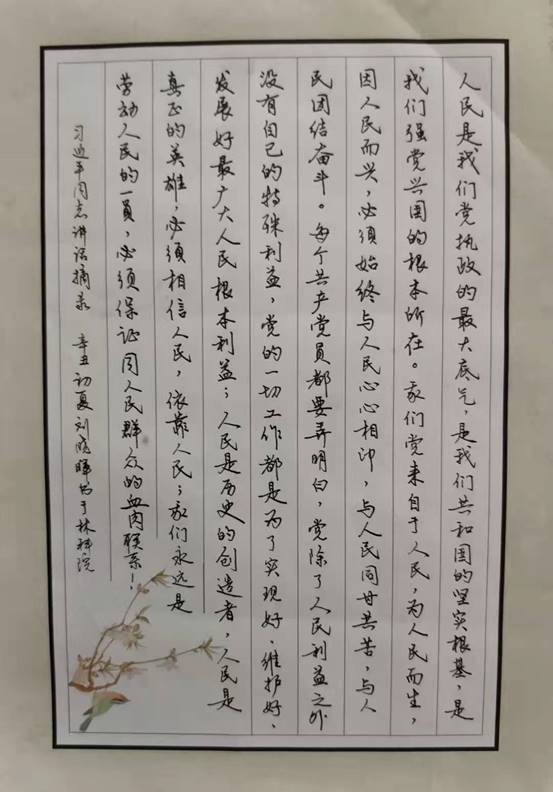 人民是我们党执政的最大底气，是我们共和国的坚实根基，是
我们强党兴国的根本所在。我们党来自于人民，为人民而生，
因人民而兴，必须始终与人民心心相印，与人民同甘共苦，与人
民团结奋斗。每个共产党员都要弄明白，党除了人民利益之外
没有自己的特殊利益，党的一切工作都是为了实现好、维护好、
发展好最广大人民根本利益；人民是历史的创造者，人民是
真正的英雄，必须相信人民，依靠人民；我们永远是
劳动人民的一员，必须保证同人民群众的血肉联系！
习近平同志讲话摘录 辛丑初夏刘晓晖书于林科院